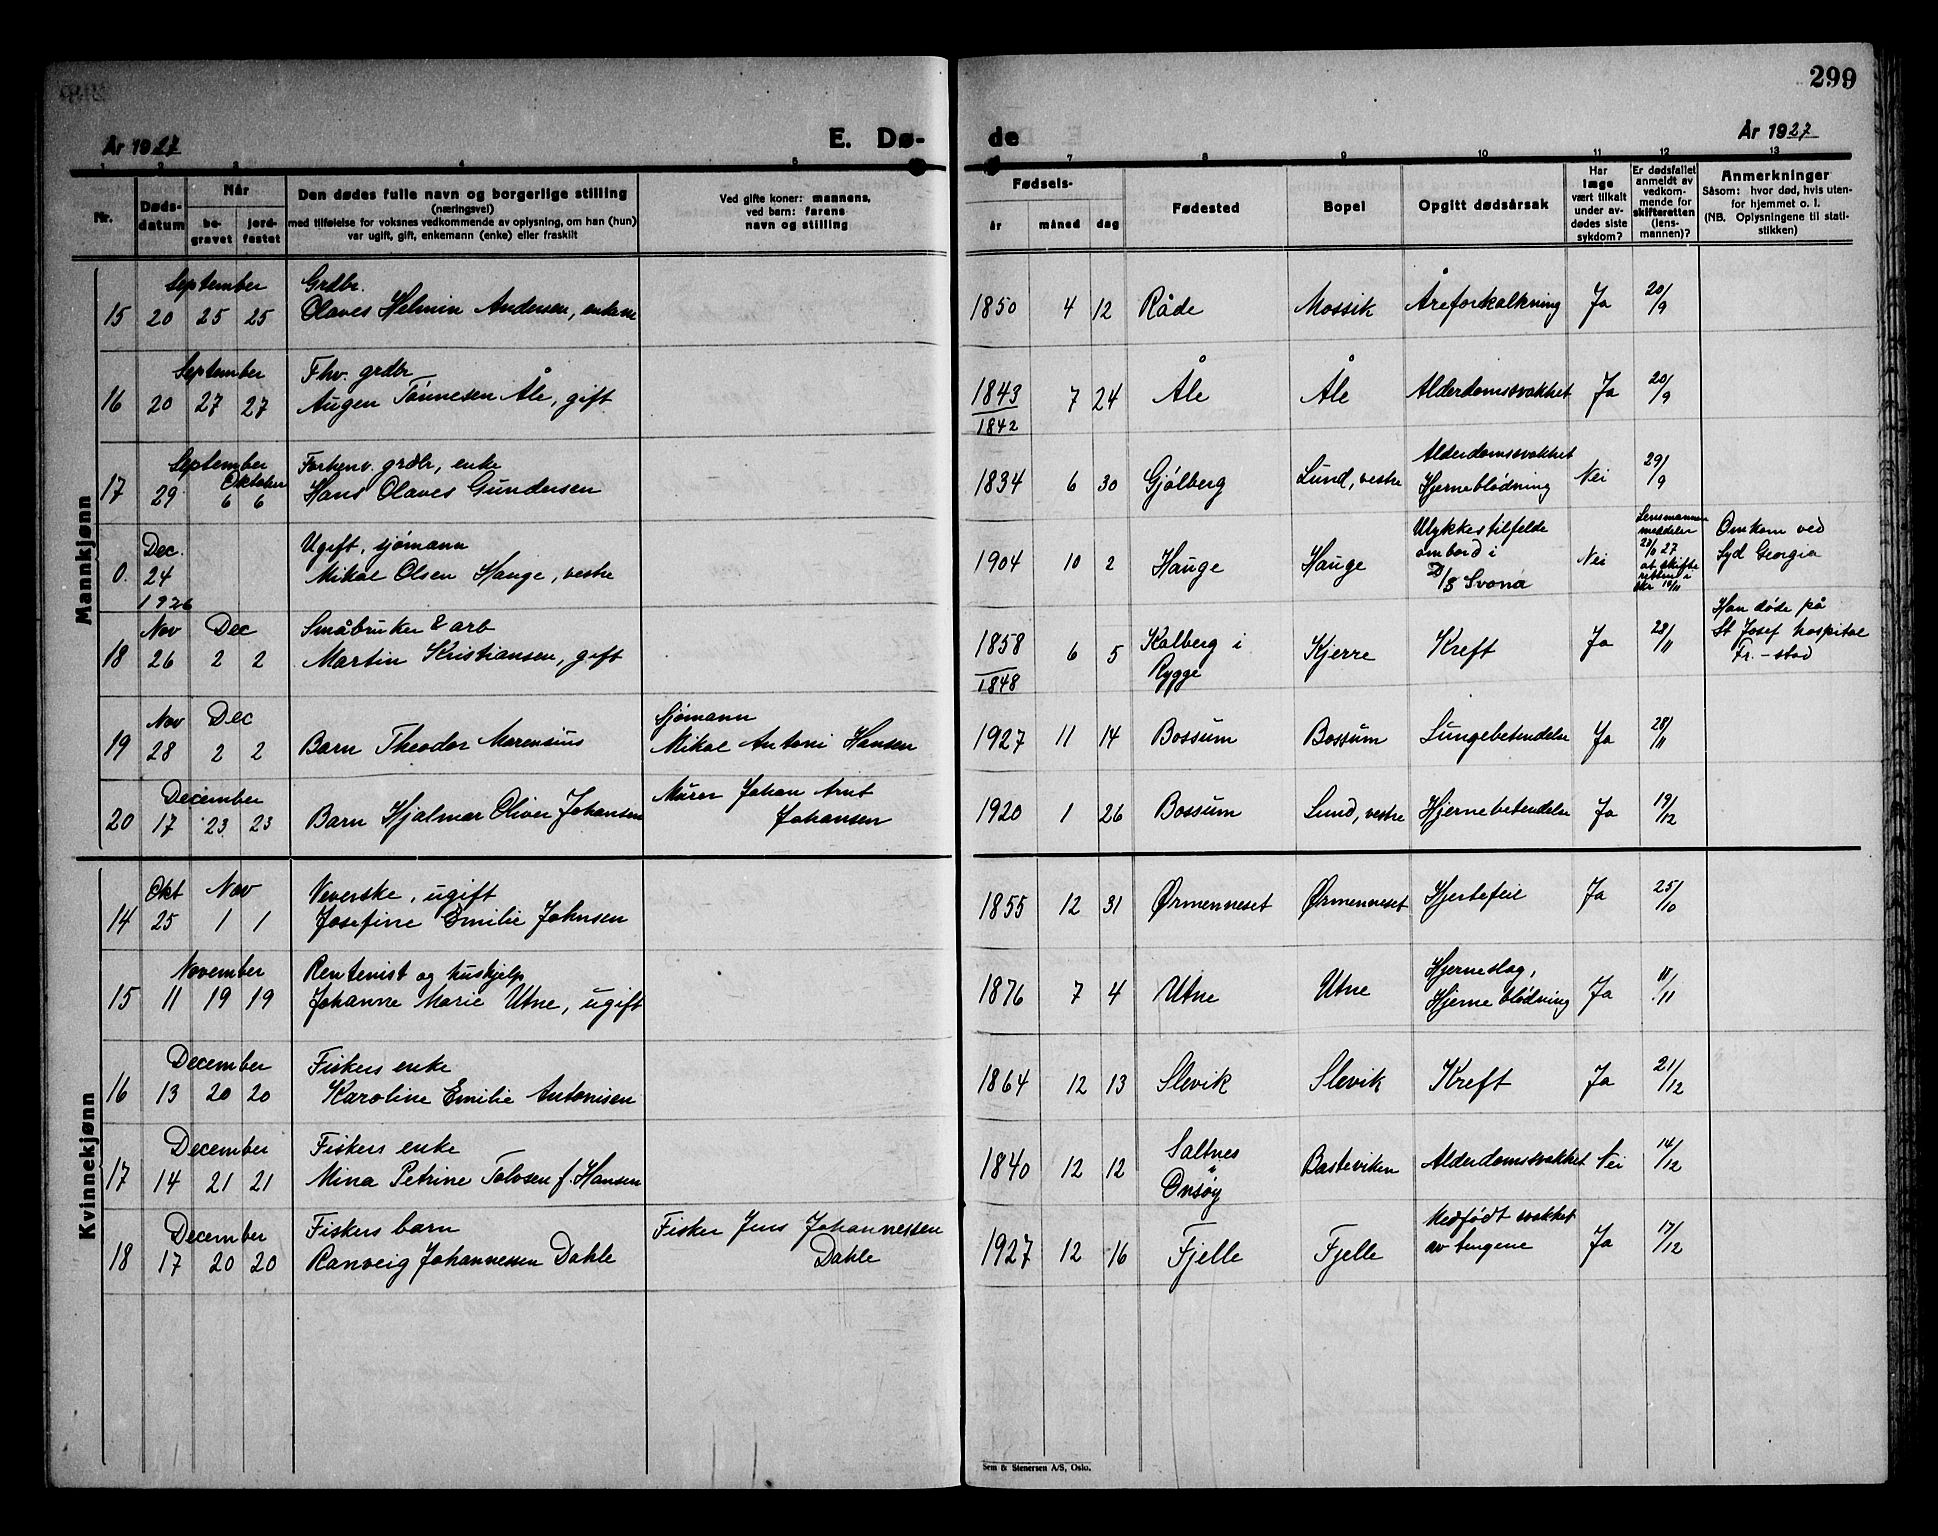 299
År 1927
E. Dø-
de
År 1927
1 2 3 4 5
7 8 9 10 11 12 13
Nr.
Døds-
datum
Når
be-
gravet
jord-
festet
Den dødes fulle navn og borgerlige stilling
(næringsvei)
med tilføielse for voksnes vedkommende av oplysning, om han (hun)
var ugift, gift, enkemann (enke) eller fraskilt
Ved gifte koner: mannens,
ved barn: farens
navn og stilling
Fødsels-
år måned dag
Fødested
Bopel
Opgitt dødsårsak
Har
læge
vært tilkalt
under av-
dødes siste
sykdom?
Er dødsfallet
anmeldt av
vedkom-
mende for
skifteretten
(lens-
mannen)?
Anmerkninger
Såsom: hvor død, hvis uten-
for hjemmet o. l.
(NB. Oplysningene til stati-
stikken)
Mannkjønn
September Grdbr.
15 20 25 25 Olaves Helmin Andersen, enkem 1850 4 12 Råde Mossik Åreforkalkning Ja 20/9
September Fhv. grdbr
16 20 27 27 Augen Tønnesen Åle, gift 1843 7 24 Åle Åle Alderdomssvakhet Ja 20/9
1842
September Forhenv. grdbr, enke Alderdomssvakhet
Oktober
17 29 6 6 Hans Olaves Gundersen 1834 6 30 Gjølberg Lund, vestre Hjerneblødning Nei 29/9
Dec. Ugift, sjømann Ulykkestilfelde Lensmannen
meddeler
0. 24 Mikal Olsen Hauge, vestre 1904 10 2 Hauge Hauge ombord i Nei 27 Omkom ved
1926 D/S Svona at skifte
retten i
skr 10/11 Syd Georgia
Nov Dec Småbruker & arb Han døde på
18 26 2 2 Martin Kristiansen, gift 1858 6 5 Kalberg i Kjerre Kreft Ja 28/11 St Josef hospital
1848 Rygge Fr.-stad
Nov Dec Sjømann
19 28 2 2 Barn Theodor Marensius Mikal Antoni Hansen 1927 11 14 Bossum Bossum Lungebetendelse Ja 28/11
December Murer Johan Arnt
20 17 23 23 Barn Hjalmar Oliver Johansen Johansen 1920 1 26 Bossum Lund, vestre Hjernebetendelse Ja 19/12
Kvinnekjønn
Okt Nov Veverske, ugift
14 25 1 1 Josefine Emilie Johnsen 1855 12 31 Ørmenneset Ørmenneset Hjertefeil Ja 25/10
November Rentenist og hushjelp Hjerneslag,
15 11 19 19 Johanne Marie Utne, ugift 1876 7 4 Utne Utne Hjerneblødning Ja 11/11
December Fiskers enke
16 13 20 20 Karoline Emilie Antonisen 1864 12 13 Slevik Slevik Kreft Ja 21/12
December Fiskers enke Saltnes
17 14 21 21 Mina Petrine Tolvsen f. Hansen 1840 12 12 Onsøy Basteviken Alderdomssvakhet Nei 14/12
December Fiskers barn Fisker Jens Johannessen Medfødt svakhet
18 17 20 20 Ranveig Johannessen Dahle Dahle 1927 12 16 Fjelle Fjelle av lungene Ja 17/12
Sem & Stenersen A/S, Oslo.